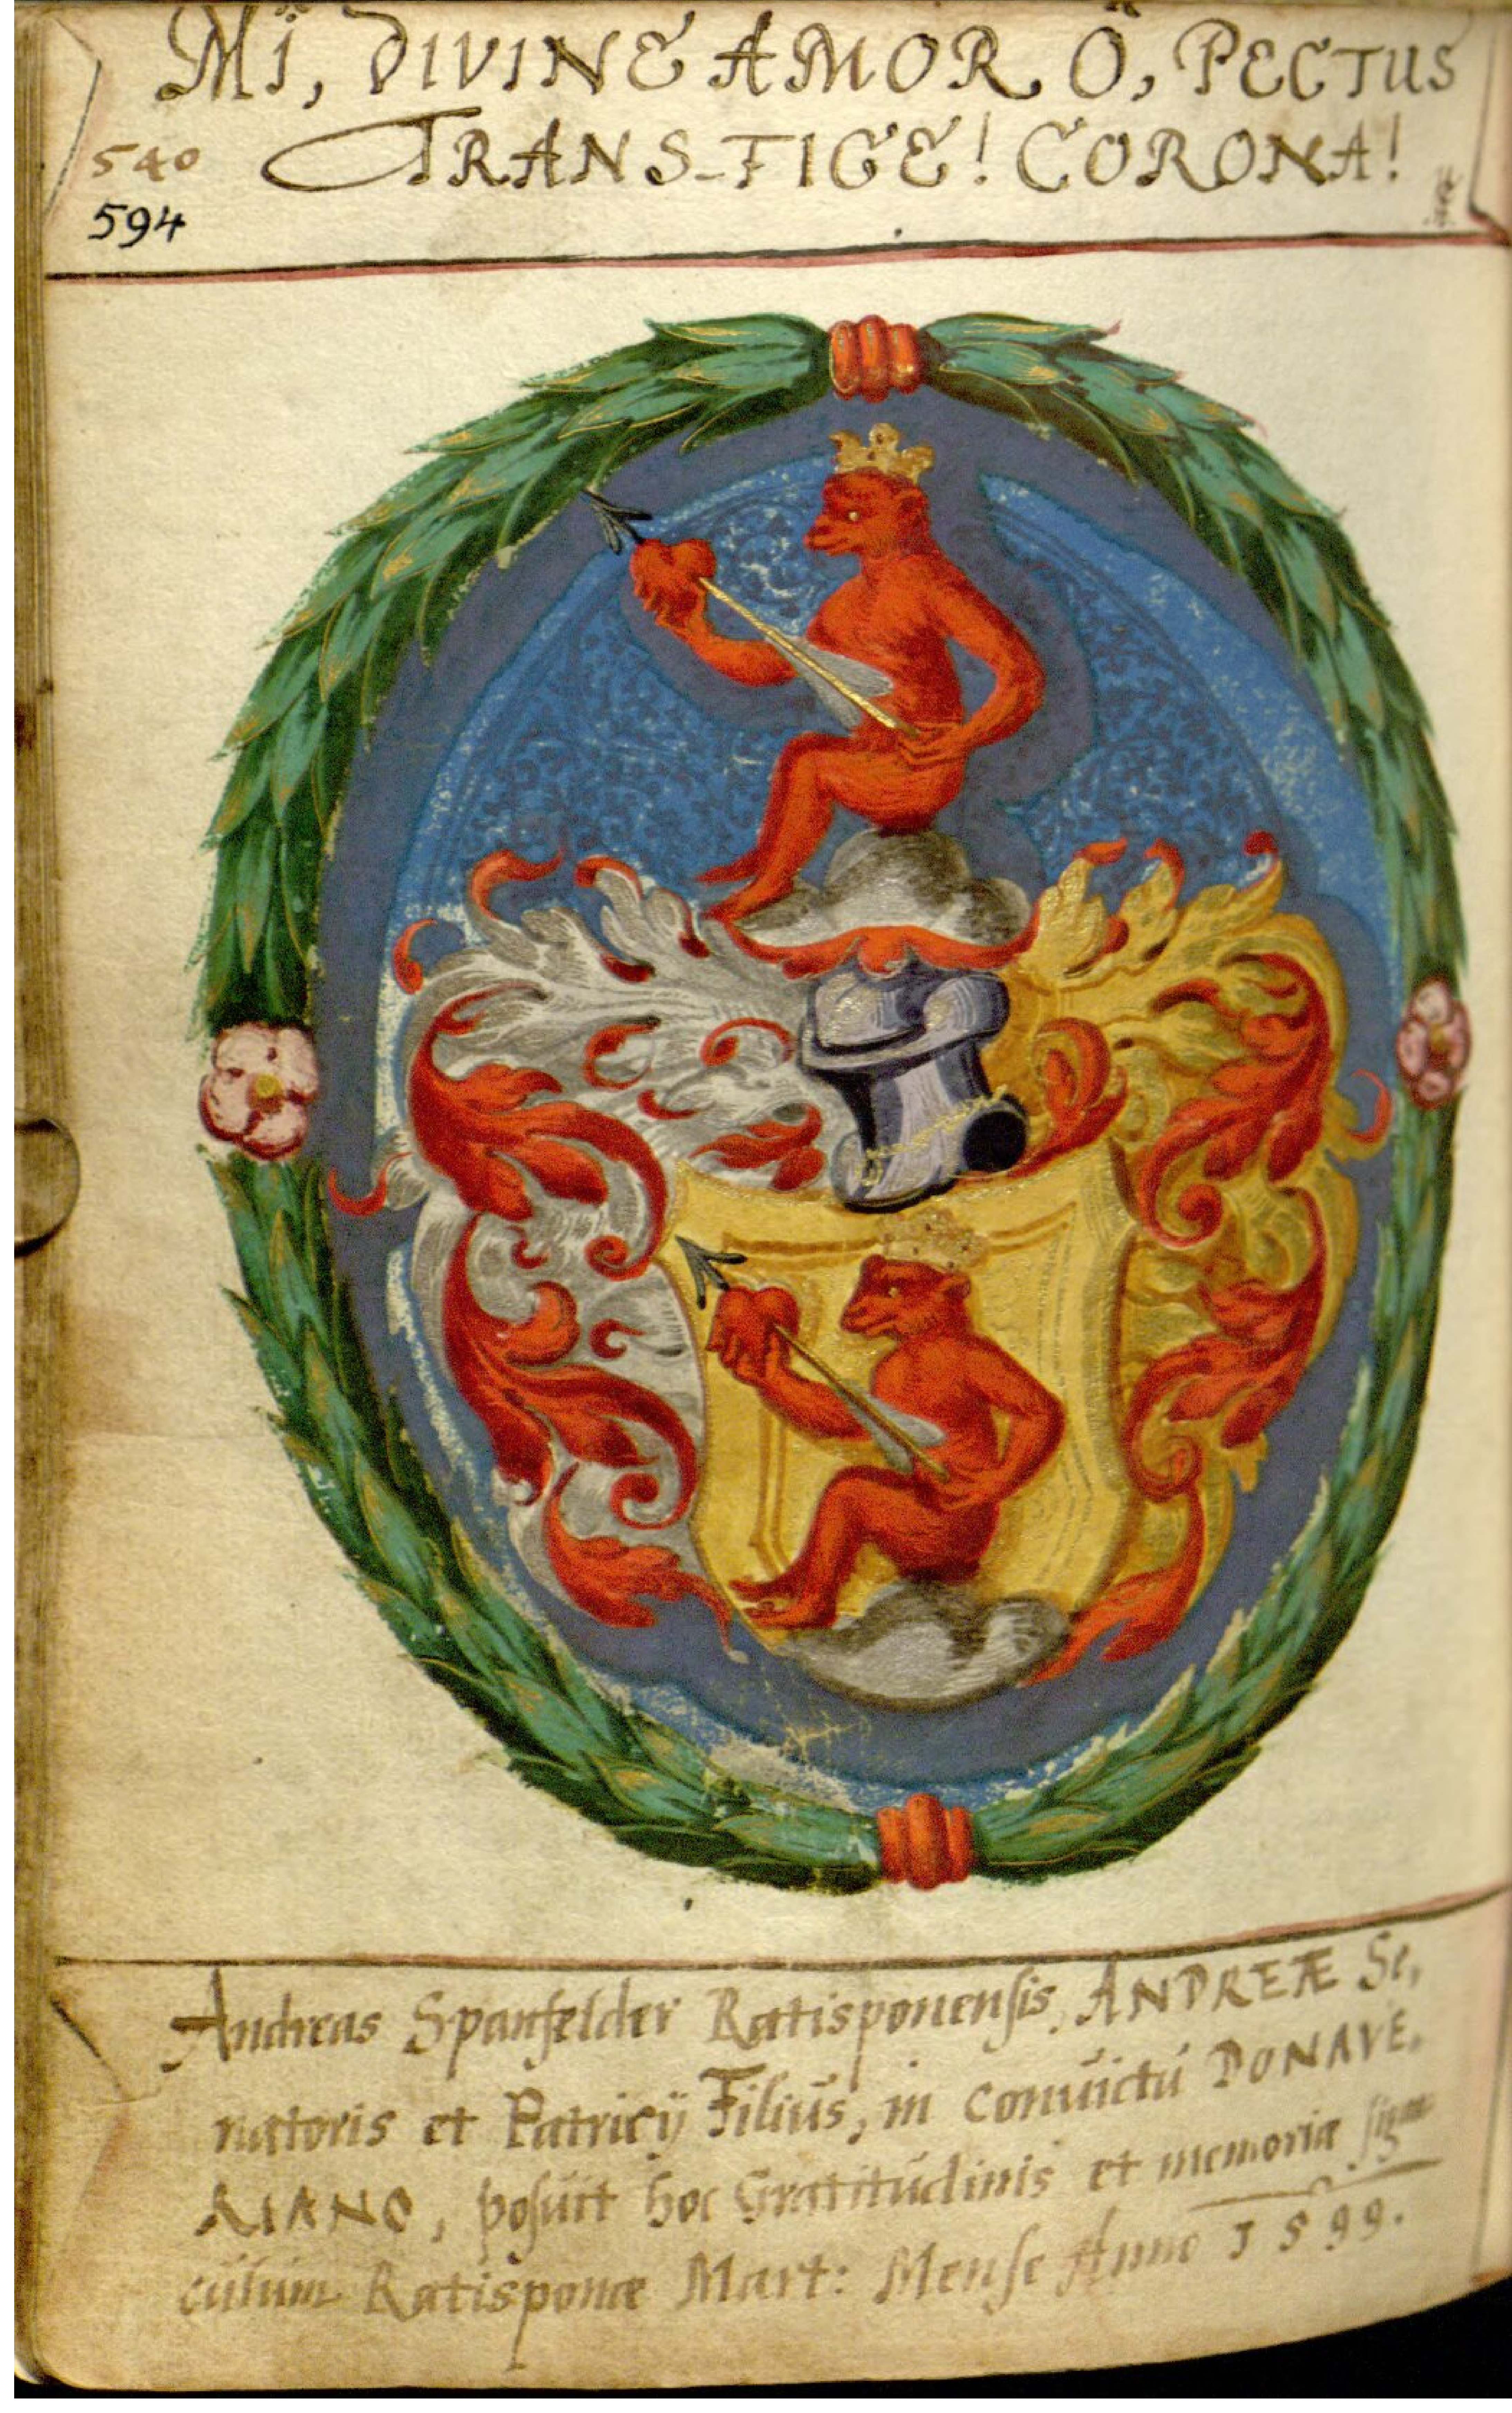 MÏ, DIVINE AMOR Ö, PECTUS
TRANS-FIGE! CORONA!
540
594
Andreas Spanfelder Ratisponensis, ANDREÆ Se,
natoris et Patricÿ Filiús, in Convictú DONAVE,
RIANO, posúit hoc Gratitúdinis et memoriæ
cúlum Ratisponæ Mart: Mense Anno 1599.